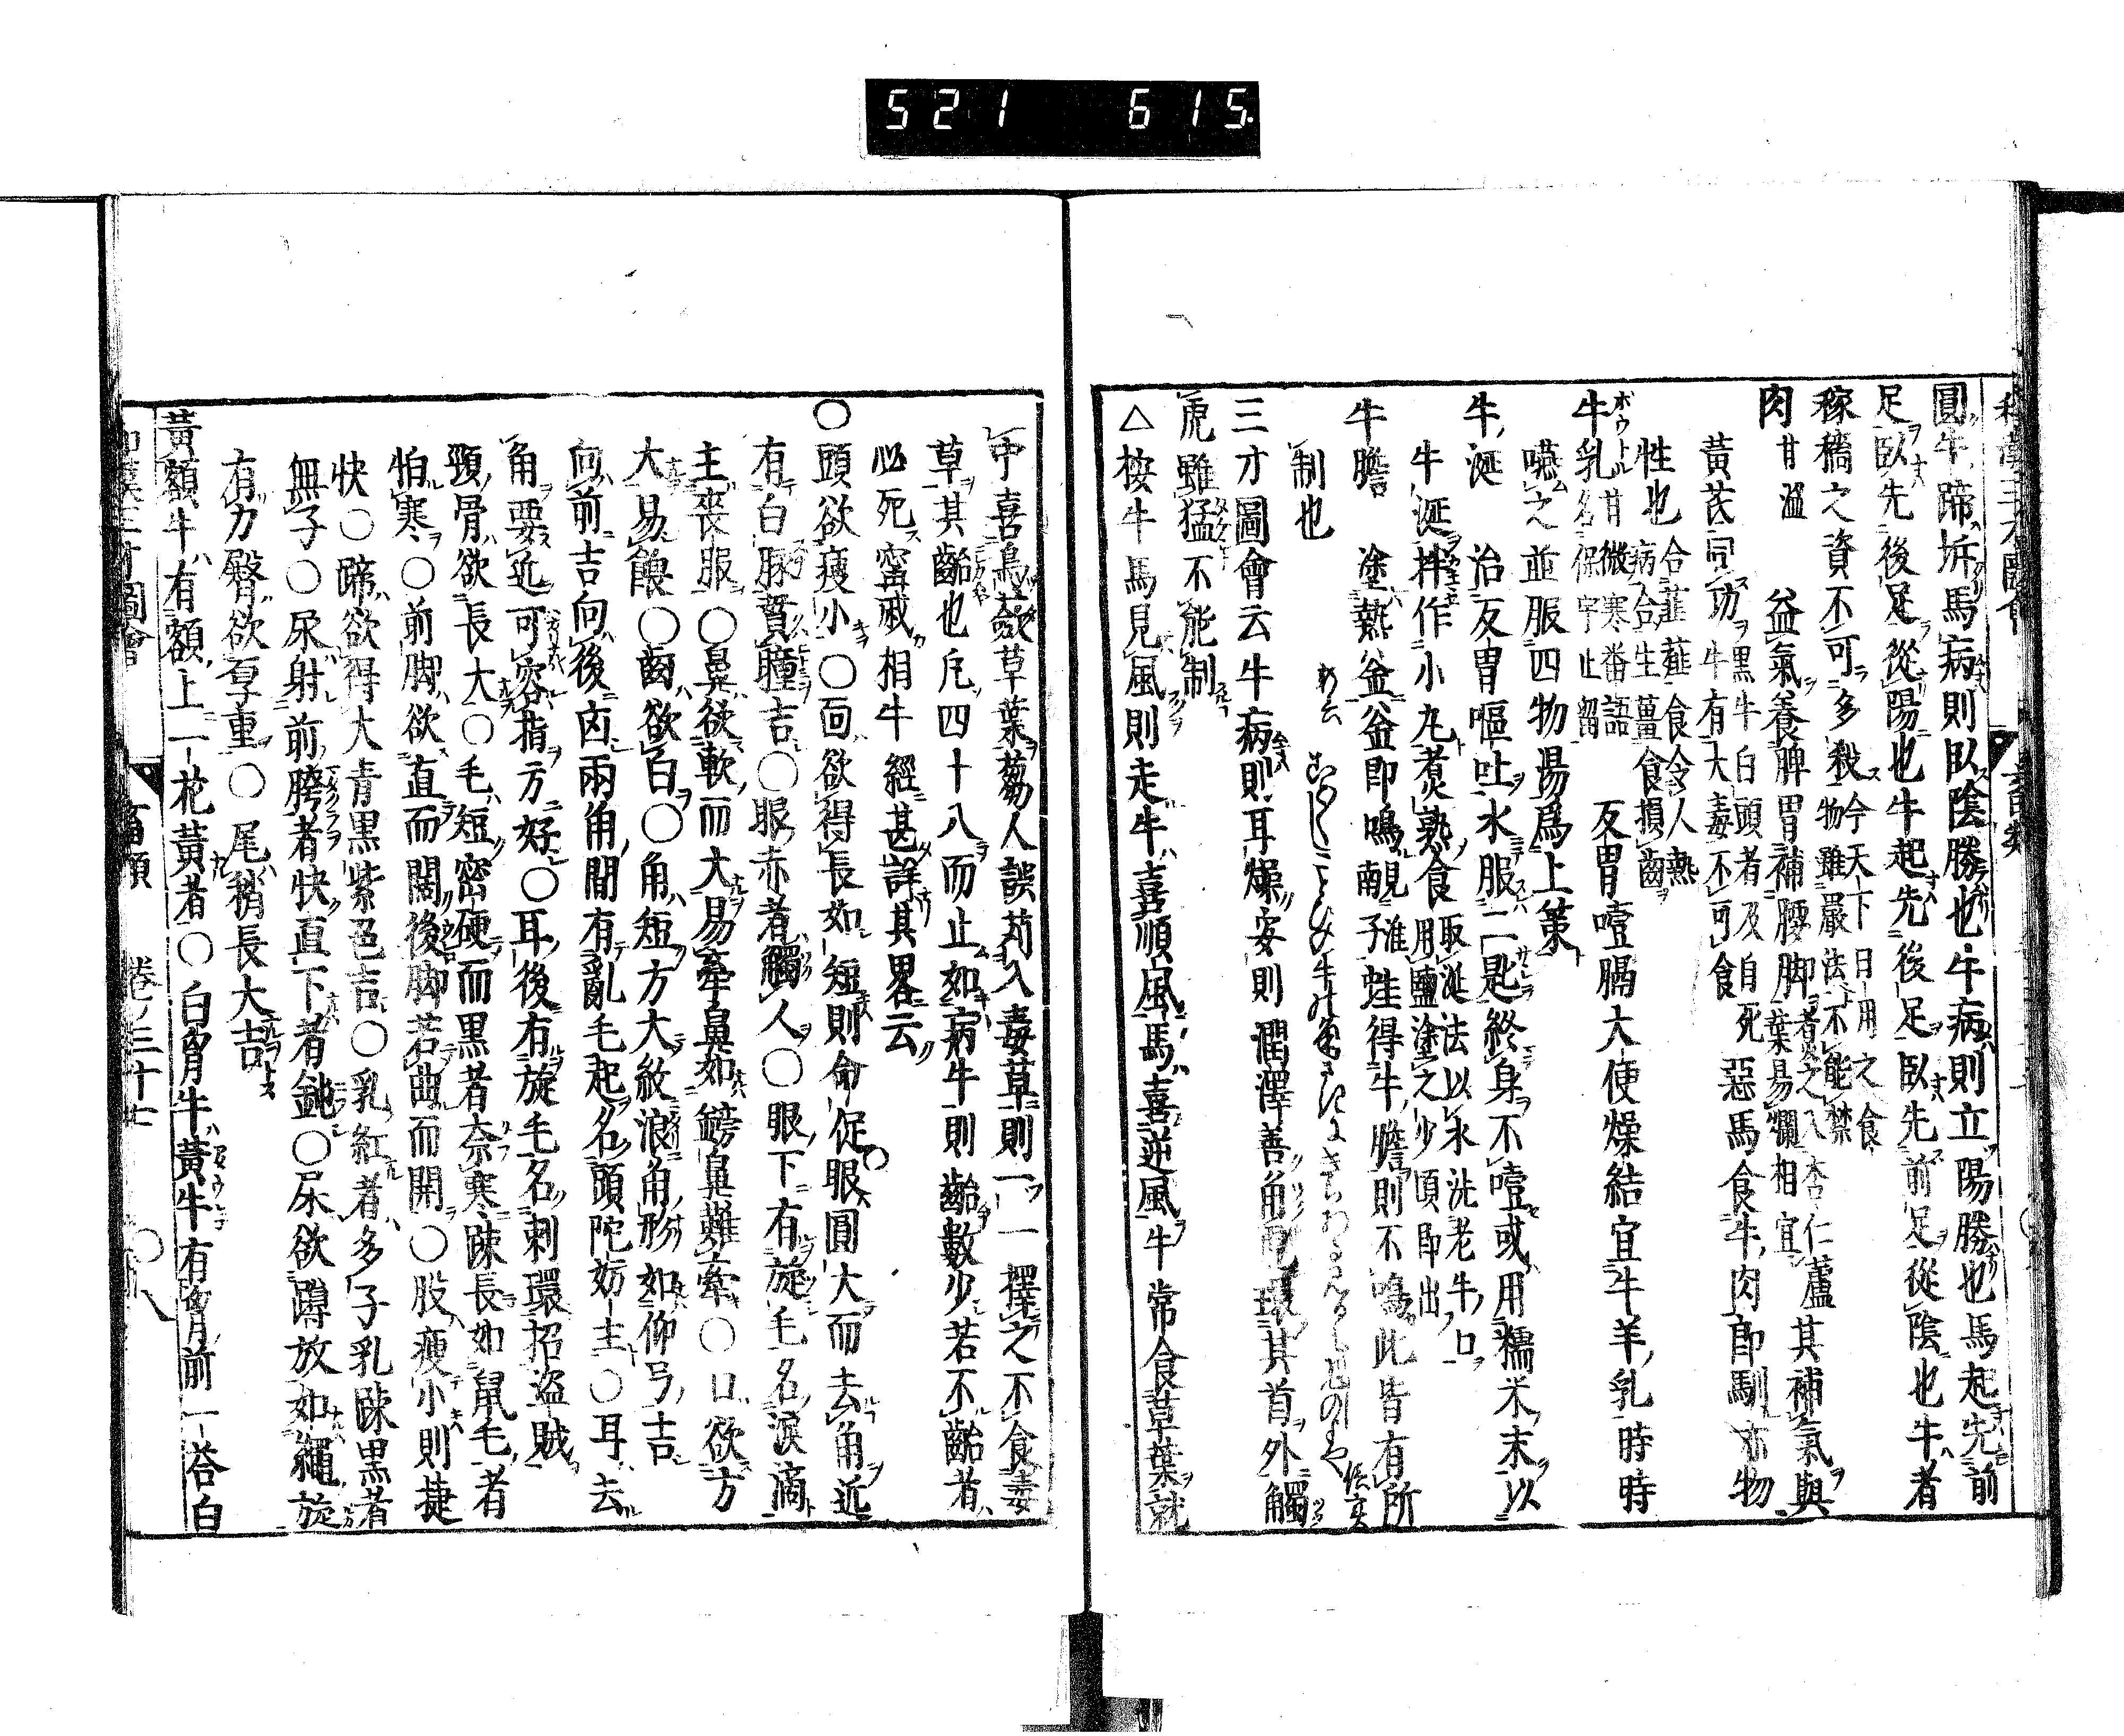 521 615.
圓牛蹄坼馬病則臥陰勝也牛病則立陽勝也馬起先前
足臥先後足從陽也牛起先後足臥先前足從陰也牛者
稼穡之資不可多殺今天下日用之食物雖嚴法不能禁
肉甘溫 益氣養脾胃補腰脚煑之入杏仁蘆葉易爛相宜其補氣與
黃芪同功黒牛白頭者及自死牛有大毒不可食 惡馬食牛肉卽馴亦物
性也合韭薤食令人熱病合生薑食損齒
牛乳甘微寒番語名保宇止留 反胃噎膈大便燥結宜牛羊乳時時
嚥之並服四物湯爲上策
牛涎 治反胃嘔吐水服二匙終身不噎或用糯米末以
牛涎拌作小丸煑熟食取涎法以水洗老牛口用鹽塗之少頃卽出
牛膽 塗熱釡釡卽鳴淮南子蛙得牛膽則不鳴此皆有所
制也
三才圖會云牛病則耳燥安則潤澤善角 環其首外觸
虎雖猛不能制
△按牛馬見風則走牛喜順風馬喜逆風牛常食草葉就
中喜 草葉蒭人誤苅入毒草則一一擇之不食毒
草其齝也凡四十八而止如病牛則齝數少若不齝者
必死甯戚相牛經甚詳其畧云
○頭欲瘦小○面欲得長如短則命促眼圓大而去角近
有白脉貫瞳吉○眼赤者觸人○眼下有旋毛名淚滴
主喪服○鼻欲軟而大易牽鼻如鏡鼻難牽○口欲方
大易餵○齒欲白○角短方大敘浪角形如仰弓吉
向前吉向後凶兩角間有亂毛起名頭陀妨主○耳去
角要近可容指方好○耳後有旋毛名刺環招盗賊
頸骨欲長大○毛短密硬而黒者奈寒踈長如鼠毛者
怕寒○前脚欲直而闊後脚若曲而開○股瘦小則捷
快○蹄欲得大青黒紫色吉○乳紅者多子乳踈黒者
無子○尿射前胯者快直下者鈍○尿欲 放如繩旋
有力臀欲厚重○尾稍長大吉
黃額牛有額上一花黃者○白胷牛黃牛有胷前一荅白
和漢三才圖會 畜類 卷ノ三十七 八